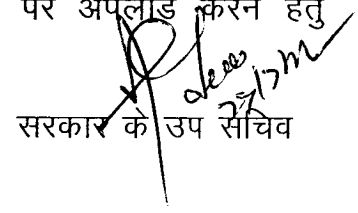 पर अपलोड करने हेतु
सरकार के उप सचिव